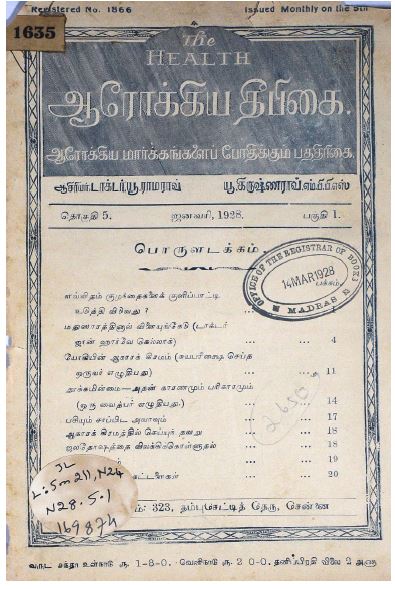 Registered No. 1866
Issued Monthly on the 5th
1635
The
HEALTH
ஆரோக்கிய தீபிகை.
ஆரோக்கிய மார்க்கங்களைப் போதிக்கும் பத்திரிகை.
ஆசிரியர்: டாக்டர். யூ. ராமராவ்
யூ. கிருஷ்ணராவ், எம்.பி.பி.எஸ்
தொகுதி 5.
ஜனவரி, 1928.
பகுதி 1.
பொருளடக்கம்.
பக்கம்.
OFFICE OF THE REGISTRAR OF BOOKS
14 MAR 1928
MADRAS
எவ்விதம் குழந்தைகளைக் குளிப்பாட்டி
உடுத்தி விடுவது?
மதுபானத்தினால் விளையுங்கேடு (டாக்டர்
ஜான் ஹார்வே கெல்லாக்) 4
யோகியின் ஆகாரக் கிரமம் (சுயபரிக்ஷை செய்த
ஒருவர் எழுதியது) 11
தூக்கமின்மை—அதன் காரணமும் பரிகாரமும்
(ஒரு வைத்யர் எழுதியது.) 14
பசியும் சாப்பிட அவாவும் 17
ஆகாரக் கிரமத்தில் செய்யுந் தவறு 18
ஜலதோஷத்தை விலக்கிக்கொள்ளுதல் 18
19
கட்டளைகள் 20
2650
JL
L:5m211,N24
N28.5.1
169874
323, தம்புசெட்டித் தெரு, சென்னை
வருட சந்தா உள்நாடு ரூ. 1-8-0. வெளிநாடு ரூ. 2 0-0. தனிப்பிரதி விலை 2 அணா